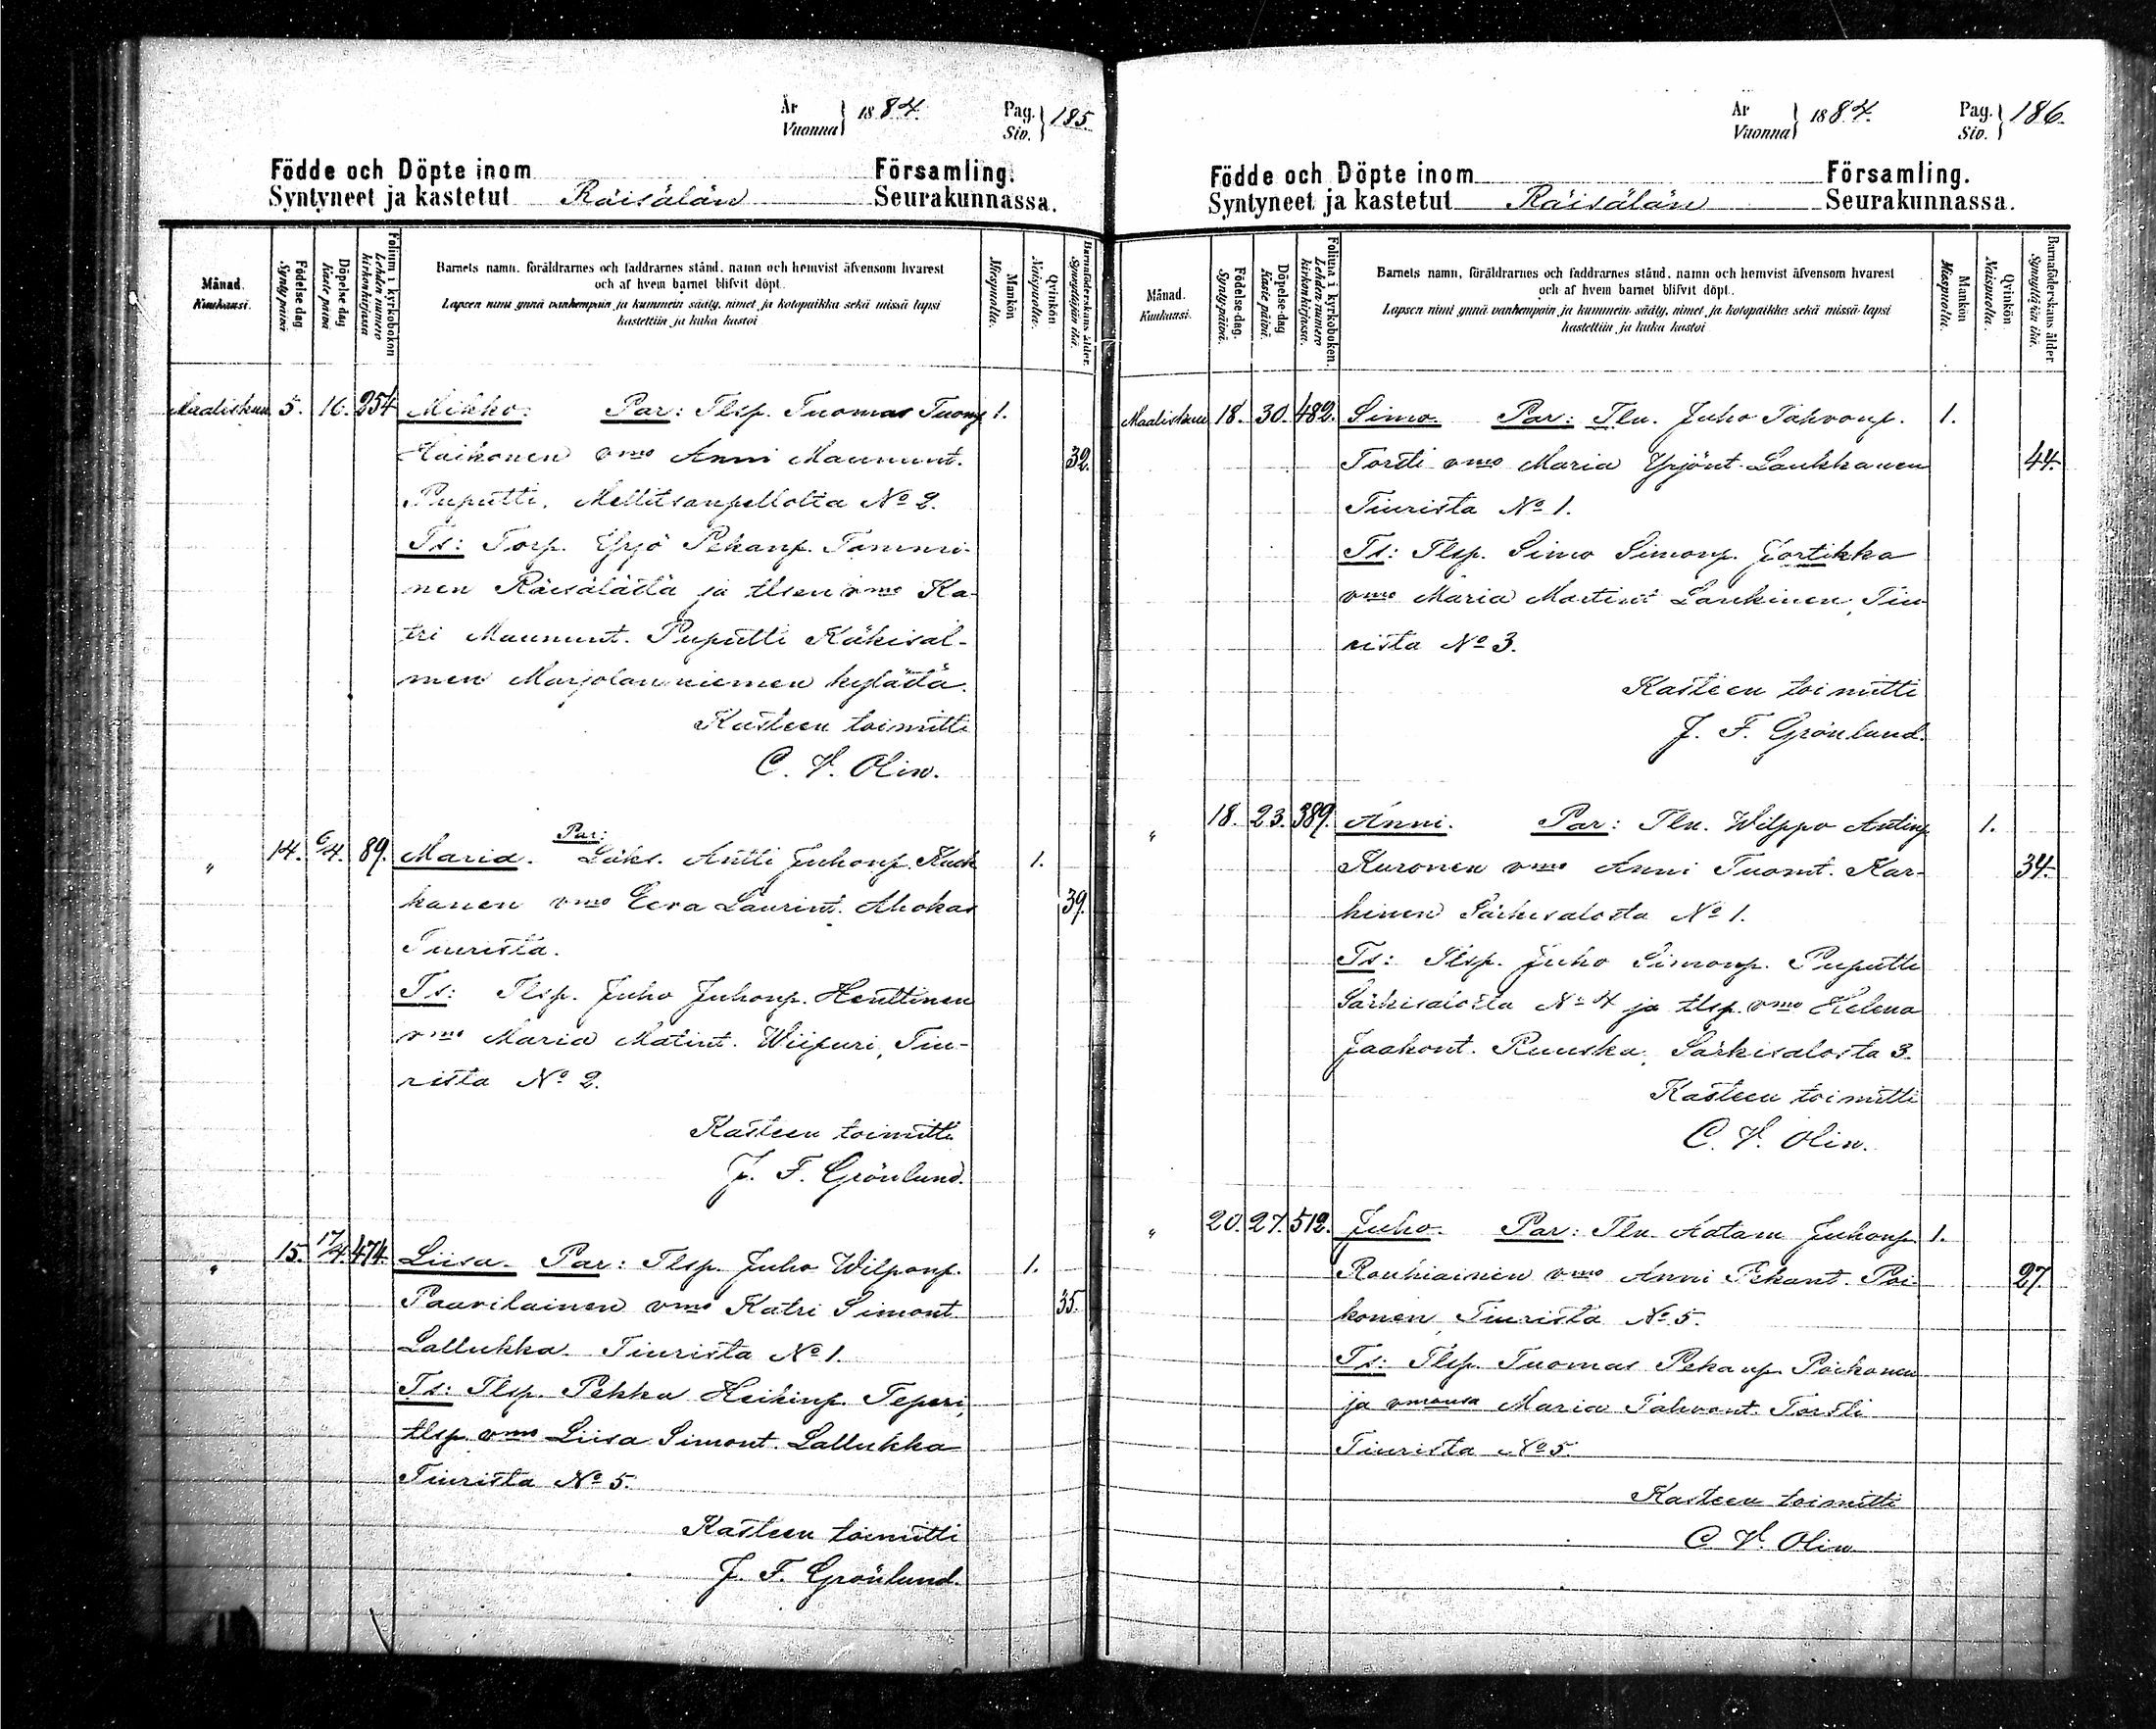 År
Vuonna } 1884.
Pag.
Siv. } 185.
Födde och Döpte inom Församling.
Syntyneet ja kastetut Räisälän Seurakunnassa.
Månad.
Kuukausi.
Födelse dag.
Synty päivä
Döpelse-dag
Kaste päivä
Folium i kyrkoboken
Lehden numero
kirkonkirjassa
Barnets namn, föräldrarnes och faddrarnes stånd, namn och hemvist äfvensom hvarest
och af hvem barnet blifvit döpt.
Lapsen nimi ynnä vanhempain ja kummein sääty, nimet ja kotopaikka sekä missä lapsi
kastettiin ja kuka kastoi
Mankön
Miespuolia.
Qvinkön
Naispuolia.
Barnaföderskans ålder.
Synnyttäjän ikä.
Maaliskuu 5. 16. 254 Mikko: Par: Tlsp. Tuomas Tuomp 1.
Haikonen vmo Anni Maununt. 32.
Puputti, Mellitsanpellolta No 2.
Ts: Torp. Yrjö Pekanp. Tammi-
nen Räisälästä ja tlsen vmo Ka-
tri Maununt. Puputti Käkisal-
men Marjolanniemen kylästä.
Kasteen toimitti
C. V. Olin.
" 14. 6/4. 89. Maria. Par: Läks. Antti Juhonp. Kuk 1.
kanen vmo Eeva Laurint. Ahokas 39.
Tiurista.
Ts: Tlsp. Juho Juhonp. Henttinen
vmo Maria Matint. Wiipuri, Tiu-
rista No 2.
Kasteen toimitti
J. F. Grönlund.
" 15. 17/4. 474. Liisa. Par: Tlsp. Juho Wilponp. 1.
Paavilainen vmo Katri Simont 35.
Lallukka. Tiurista No 1.
Ts: Tlsp. Pekka Heikinp. Teperi,
tlsp. vmo Liisa Simont. Lallukka
Tiurista No 5.
Kasteen toimitti
J. F. Grönlund.
År
Vuonna } 1884.
Pag.
Siv. } 186.
Födde och Döpte inom Församling.
Syntyneet ja kastetut Räisälän Seurakunnassa.
Månad.
Kuukausi.
Födelse-dag.
Syntypäivä.
Döpelse-dag
Kaste päivä.
Folium i kyrkoboken.
Lehden numero
kirkonkirjassa.
Barnets namn, föräldrarnes och faddrarnes stånd, namn och hemvist äfvensom hvarest
och af hvem barnet blifvit döpt.
Lapsen nimi ynnä vanhempain ja kummein sääty, nimet ja kotopaikka sekä missä lapsi
kastettiin ja kuka kastoi
Mankön
Miespuolia.
Qvinkön
Naispuolia.
Barnaföderskans ålder
Synnyttäjän ikä.
Maaliskuu 18. 30. 482. Simo. Par: Tln. Juho Tahvonp. 1.
Torsti vmo Maria Yrjönt. Laukkanen 44.
Tiurista No 1.
Ts: Tlsp. Simo Simonp. Jortikka
vmo Maria Martint Laukinen, Tiu-
rista No 3.
Kasteen toimitti
J. F. Grönlund.
" 18. 23. 389. Anni. Par: Tln. Wilppo Antinp 1.
Kuronen vmo Anni Tuomt. Kar- 34.
hinen Särkisalosta No 1.
Ts: Tlsp. Juho Simonp. Puputti
Särkisalosta No 4 ja tlsp. vmo Helena
Jaakont. Ruuska, Särkisalosta 3.
Kasteen toimitti
C. V. Olin.
" 20. 27. 512. Juho. Par: Tln. Aatam Juhonp. 1.
Rouhiainen vmo Anni Pekant. Poi 27.
konen, Tiurista No 5.
Ts: Tlsp. Tuomas Pekanp. Poikonen
ja vmonsa Maria Tahvont. Torsti
Tiurista No 5
Kasteen toimitti
C. V. Olin